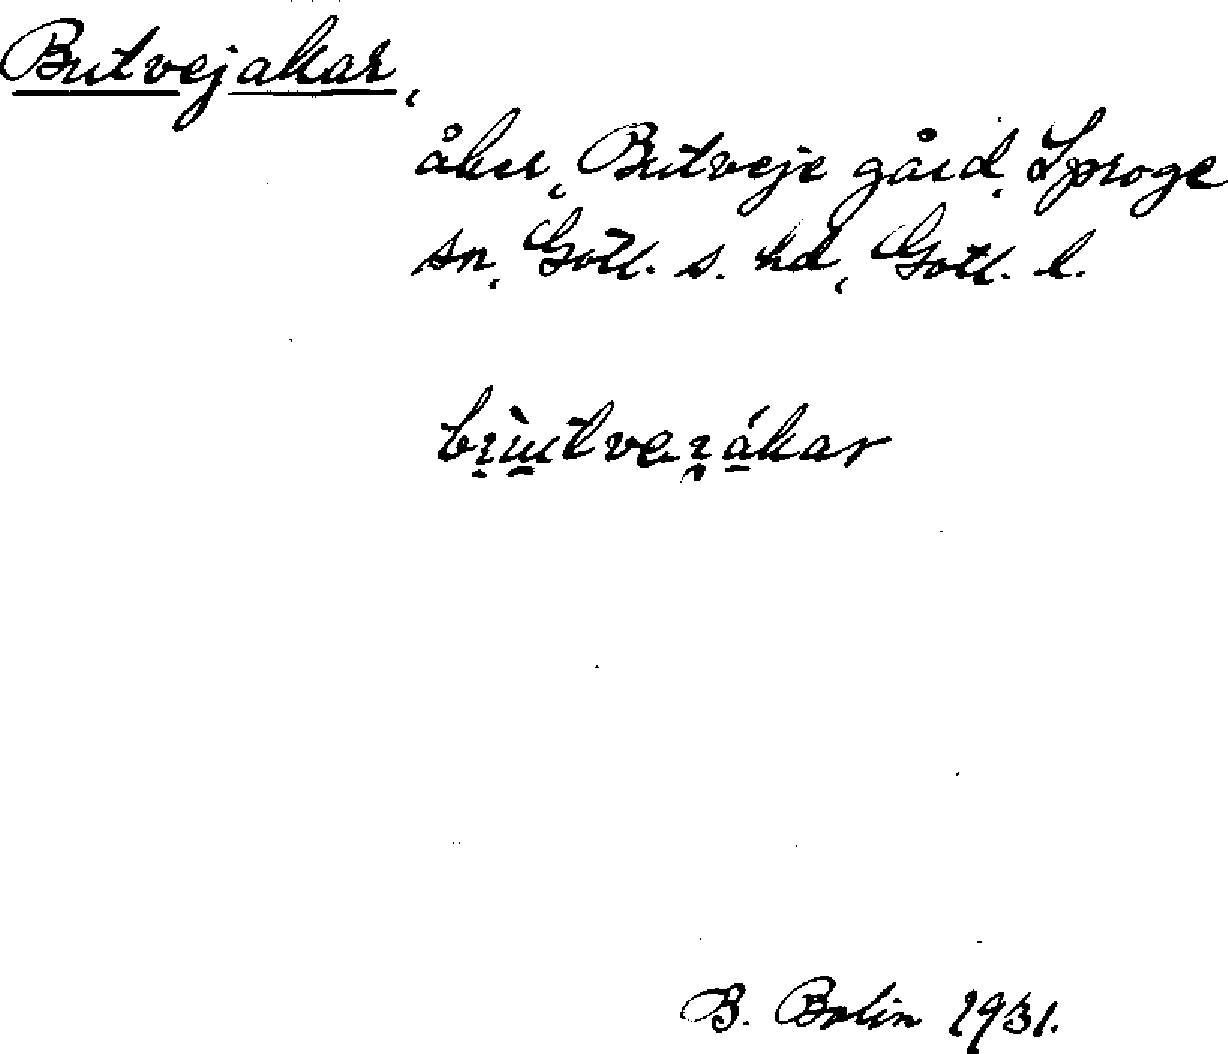 Butvejakar,
åker, Butveje gård, Sproge
sn, Gotl. s. hd, Gotl. l.
B. Bolin 1931.